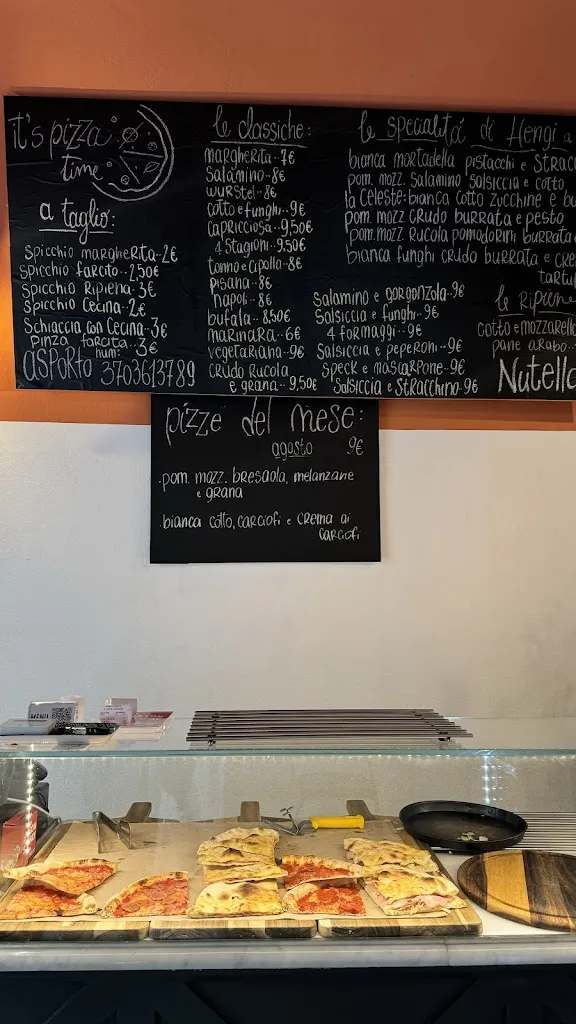 it's pizza
time
a taglio:
Spicchio margherita - 2€
Spicchio farcito - - 2.50€
Spicchio Ripiena - 3€
Spicchio Cecina - - 2€
Schiaccia con Cecina - 3€
pinza farcita - - 3€
num:
ASPORTO 3703613789
le classiche:
margherita - 7€
Salamino - - 8€
wurstel - - 8€
cotto e funghi - - 9€
capricciosa - - 9,50€
4 Stagioni - 9.50€
tonno e cipolla - 8€
pisana - - 8€
napoli - - 8€
bufala - - 8.50€
marinara - - 6€
vegetariana - 9€
crudo rucola
e grana - - 9,50€
le specialità di Hengi a
bianca mortadella pistacchi e STRACC
pom. mozz. Salamino salsiccia e cotto
la Celeste: bianca cotto zucchine e bu
pom. mozz crudo burrata e pesto
pom. mozz. Rucola pomodorini burrata e
bianca funghi crudo burrata e cre
tartu
Salamino e gorgonzola - 9€
Salsiccia e funghi - - 9€
4 formaggi - - 9€
Salsiccia e peperoni - - 9€
speck e mascarpone - 9€
Salsiccia e Stracchino - 9€
le Ripiene
cotto e mozzarella
pane arabo - -
Nutella
pizze del mese:
agosto 9€
.pom. mozz. bresaola, melanzane
e grana
.bianca cotto, carciofi e crema ai
carciofi